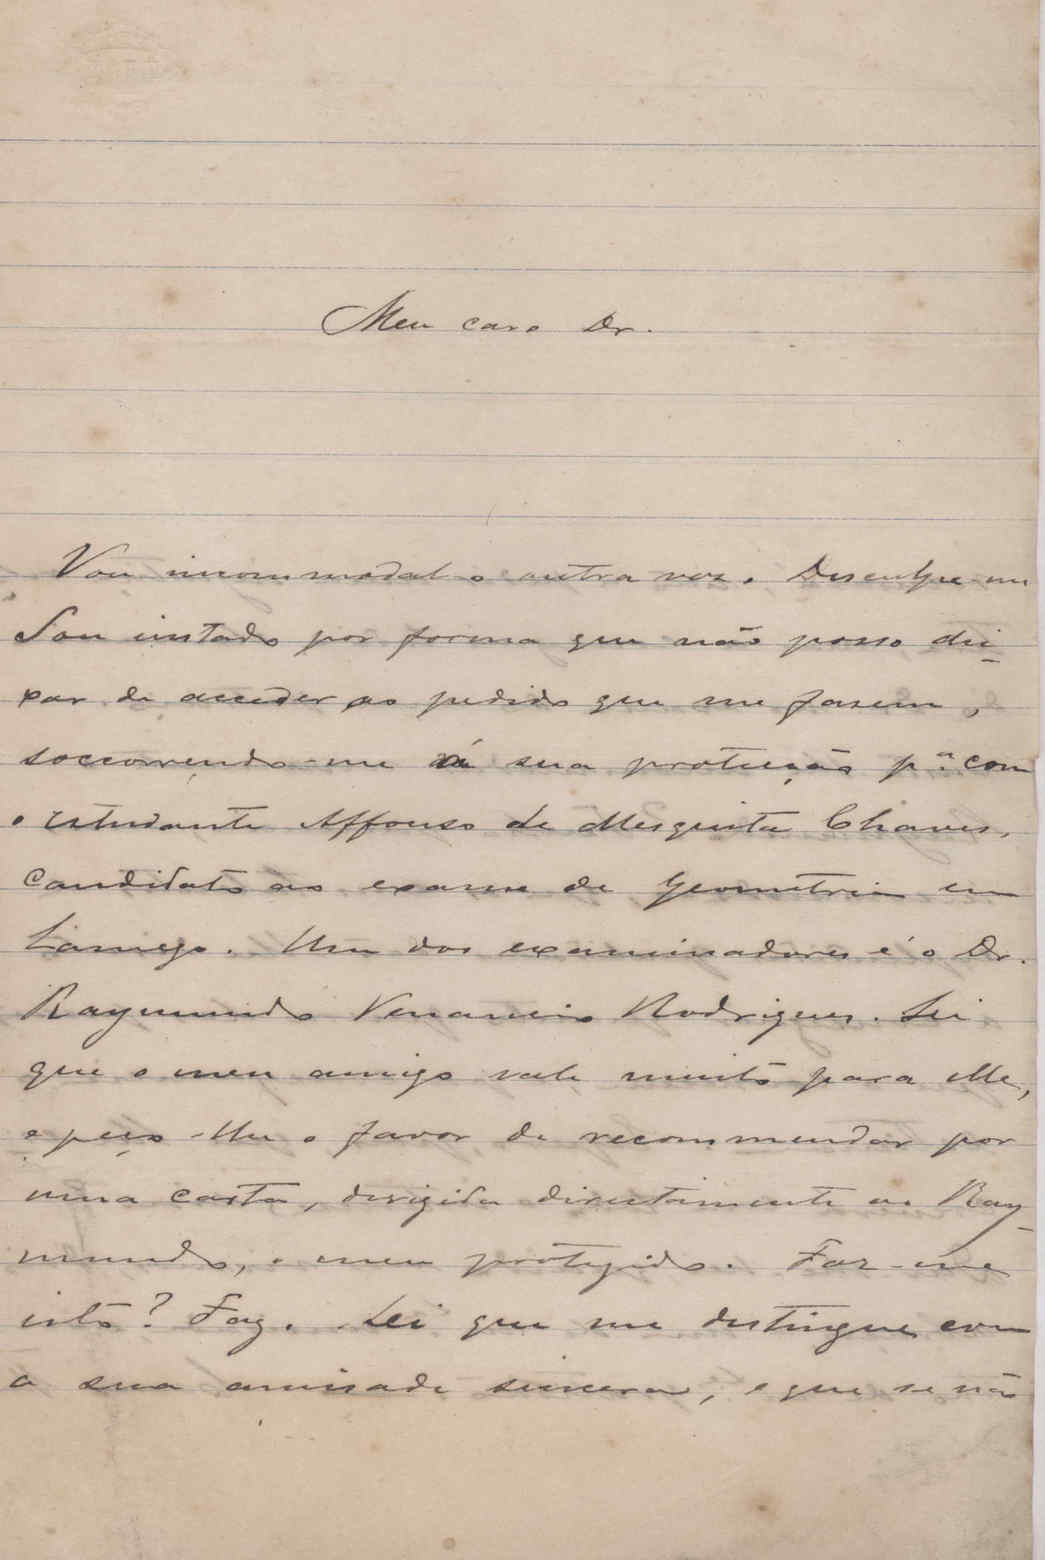 Meu caro Dr.
Vou incommodal-o outra vez. Desculpe-me
Sou instado por forma que não posso dei-
xar de acceder ao pedido que me fasem,
soccorrendo-me á sua protecção p.ª com
o estudante Affonso de Mesquita Chaves,
candidato ao exame de Geometria em
Lamego. Um dos examinadores é o Dr.
Raymundo Venancio Rodrigues. Sei
que o meu amigo vale muito para elle,
e peço-lhe o favor de recommendar por
uma carta, dirigida directamente ao Ray-
mundo, o meu protegido. Faz-me
isto? Faz. Sei que me distingue com
a sua amisade sincera, e que se não